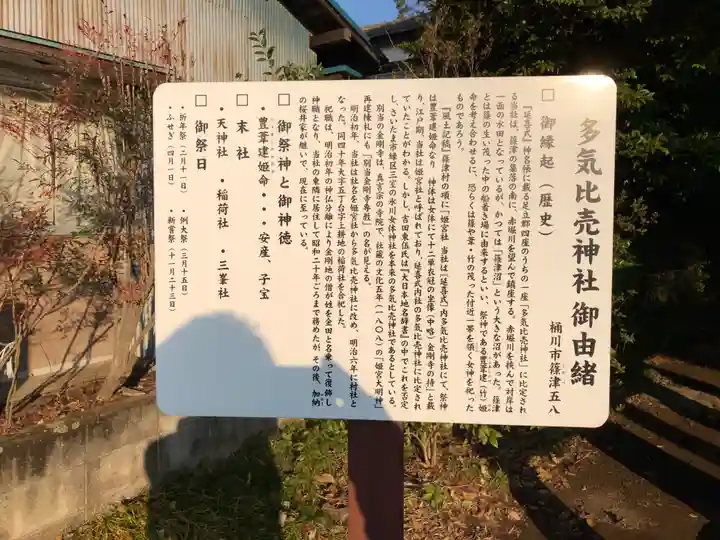 多気比売神社 御由緒
桶川市篠津五八
□ 御縁起（歴史）
『延喜式』神名帳に載る足立郡四座のうちの一座「多気比売神社」に比定され
る当社は、篠津の集落の南に、赤堀川を望んで鎮座する。赤堀川を挟んで対岸は
一面の水田となっているが、かつては「篠津沼」という大きな沼があった。篠津
とは篠の生い茂った中の船着き場に由来するといい、祭神である豊葦建（竹）姫
命を考え合わせるに、恐らくは篠や葦・竹の茂った付近一帯を領く女神を祀った
ものであろう。
『風土記稿』篠津村の項に「姫宮社 当社は［延喜式］内多気比売神社にて、祭神
は豊葦建姫命なり、神体は女体にて十二単衣冠の坐像（中略）金剛寺の持」と載
り、江戸期、当社は姫宮社と呼ばれており、延喜式内社の多気比売神社に比定され
ていたことがわかる。しかし、吉田東伍氏は『大日本地名辞書』の中でこれを否定
し、さいたま市緑区三室の氷川女体神社を本来の多気比売神社であるとしている。
別当の金剛寺は、真言宗の寺院で、社蔵の文化五年（一八〇八）の「姫宮大明神」
再建棟札にも「別当金剛寺尊教」の名が見える。
明治初年、当社は社名を姫宮社から多気比売神社に改め、明治六年に村社と
なった。同四十年大字五丁台字上耕地の稲荷社を合祀した。
祀職は、明治初年の神仏分離により金剛地の僧が姓を金田と名乗って復飾し
神職となり、当社の東隣に居住して昭和二十年ごろまで務めたが、その後、加納
の桜井家が継いで、現在に至っている。
□ 御祭神と御神徳
・豊葦建姫命・・・安産、子宝
□ 末社
・天神社 ・稲荷社 ・三峯社
□ 御祭日
・祈年祭（三月十一日） ・例大祭（三月十五日）
・ふせぎ（四月一日） ・新嘗祭（十一月二十三日）